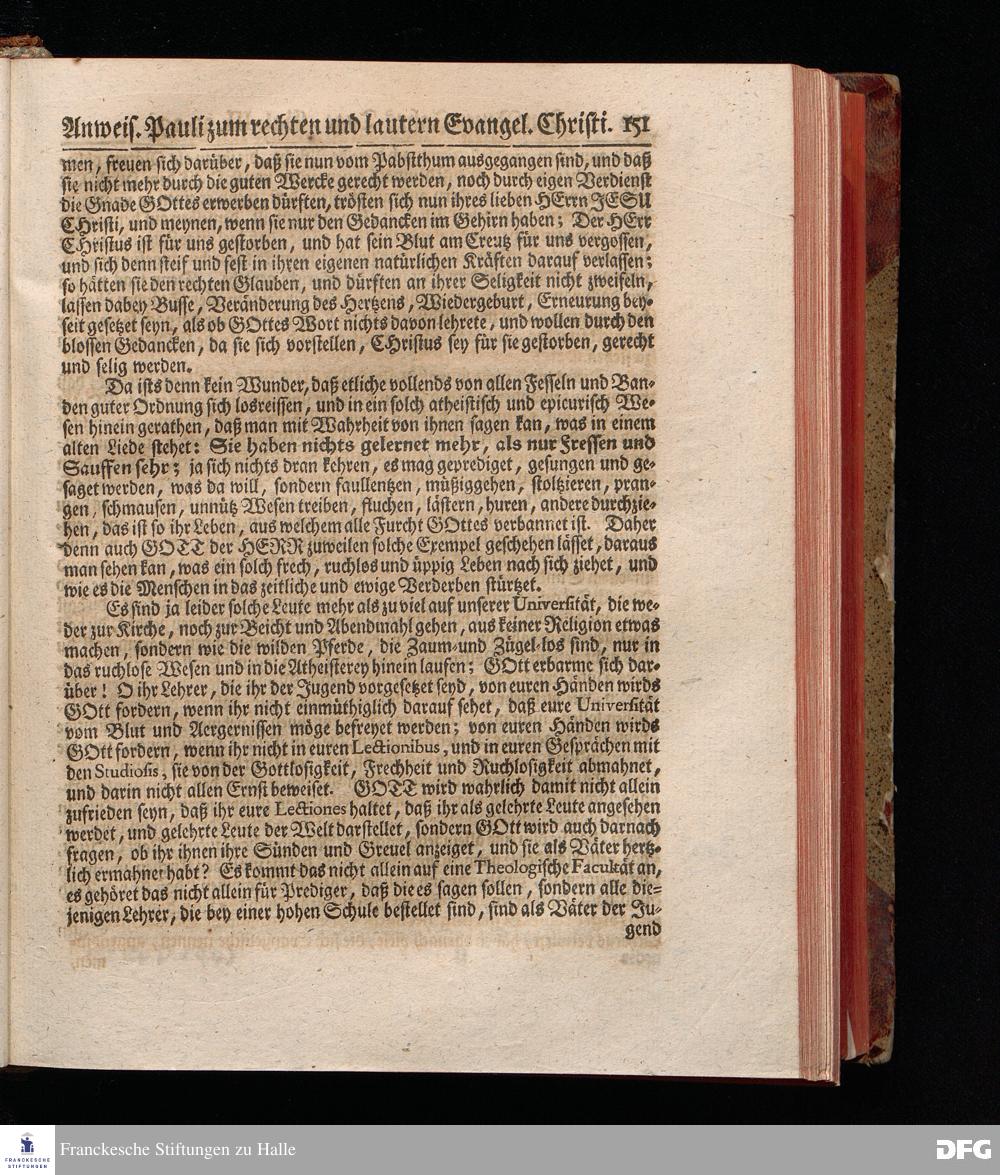 Anweis. Pauli zum rechten und lautern Evangel. Christi. 151
men, freuen sich darüber, daß sie nun vom Pabstthum ausgegangen sind, und daß
sie nicht mehr durch die guten Wercke gerecht werden, noch durch eigen Verdienst
die Gnade GOttes erwerben dürften, trösten sich nun ihres lieben HErrn JESU
CHristi, und meynen, wenn sie nur den Gedancken im Gehirn haben; Der HErr
CHristus ist für uns gestorben, und hat sein Blut am Creutz für uns vergossen,
und sich denn steif und fest in ihren eigenen natürlichen Kräften darauf verlassen;
so hätten sie den rechten Glauben, und dürften an ihrer Seligkeit nicht zweifeln,
lassen dabey Busse, Veränderung des Hertzens, Wiedergeburt, Erneurung bey-
seit gesetzet seyn, als ob GOttes Wort nichts davon lehrete, und wollen durch den
blossen Gedancken, da sie sich vorstellen, CHristus sey für sie gestorben, gerecht
und selig werden.
Da ists denn kein Wunder, daß etliche vollends von allen Fesseln und Ban-
den guter Ordnung sich losreissen, und in ein solch atheistisch und epicurisch We-
sen hinein gerathen, daß man mit Wahrheit von ihnen sagen kan, was in einem
alten Liede stehet: Sie haben nichts gelernet mehr, als nur Fressen und
Sauffen sehr; ja sich nichts dran kehren, es mag geprediget, gesungen und ge-
saget werden, was da will, sondern faullentzen, müßiggehen, stoltzieren, pran-
gen, schmausen, unnütz Wesen treiben, fluchen, lästern, huren, andere durchzie-
hen, das ist so ihr Leben, aus welchem alle Furcht GOttes verbannet ist. Daher
denn auch GOTT der HERR zuweilen solche Exempel geschehen lässet, daraus
man sehen kan, was ein solch frech, ruchlos und üppig Leben nach sich ziehet, und
wie es die Menschen in das zeitliche und ewige Verderben stürtzet.
Es sind ja leider solche Leute mehr als zu viel auf unserer Universität, die we-
der zur Kirche, noch zur Beicht und Abendmahl gehen, aus keiner Religion etwas
machen, sondern wie die wilden Pferde, die Zaum- und Zügel-los sind, nur in
das ruchlose Wesen und in die Atheisterey hinein laufen; GOtt erbarme sich dar-
über! O ihr Lehrer, die ihr der Jugend vorgesetzet seyd, von euren Händen wirds
GOtt fordern, wenn ihr nicht einmüthiglich darauf sehet, daß eure Universität
vom Blut und Aergernissen möge befreyet werden; von euren Händen wirds
GOtt fordern, wenn ihr nicht in euren Lectionibus, und in euren Gesprächen mit
den Studiosis, sie von der Gottlosigkeit, Frechheit und Ruchlosigkeit abmahnet,
und darin nicht allen Ernst beweiset. GOTT wird wahrlich damit nicht allein
zufrieden seyn, daß ihr eure Lectiones haltet, daß ihr als gelehrte Leute angesehen
werdet, und gelehrte Leute der Welt darstellet, sondern GOtt wird auch darnach
fragen, ob ihr ihnen ihre Sünden und Greuel anzeiget, und sie als Väter hertz-
lich ermahnet habt? Es kommt das nicht allein auf eine Theologische Facultät an,
es gehöret das nicht allein für Prediger, daß die es sagen sollen, sondern alle die-
jenigen Lehrer, die bey einer hohen Schule bestellet sind, sind als Väter der Ju-
gend
FRANCKESCHE
STIFTUNGEN
Franckesche Stiftungen zu Halle
DFG